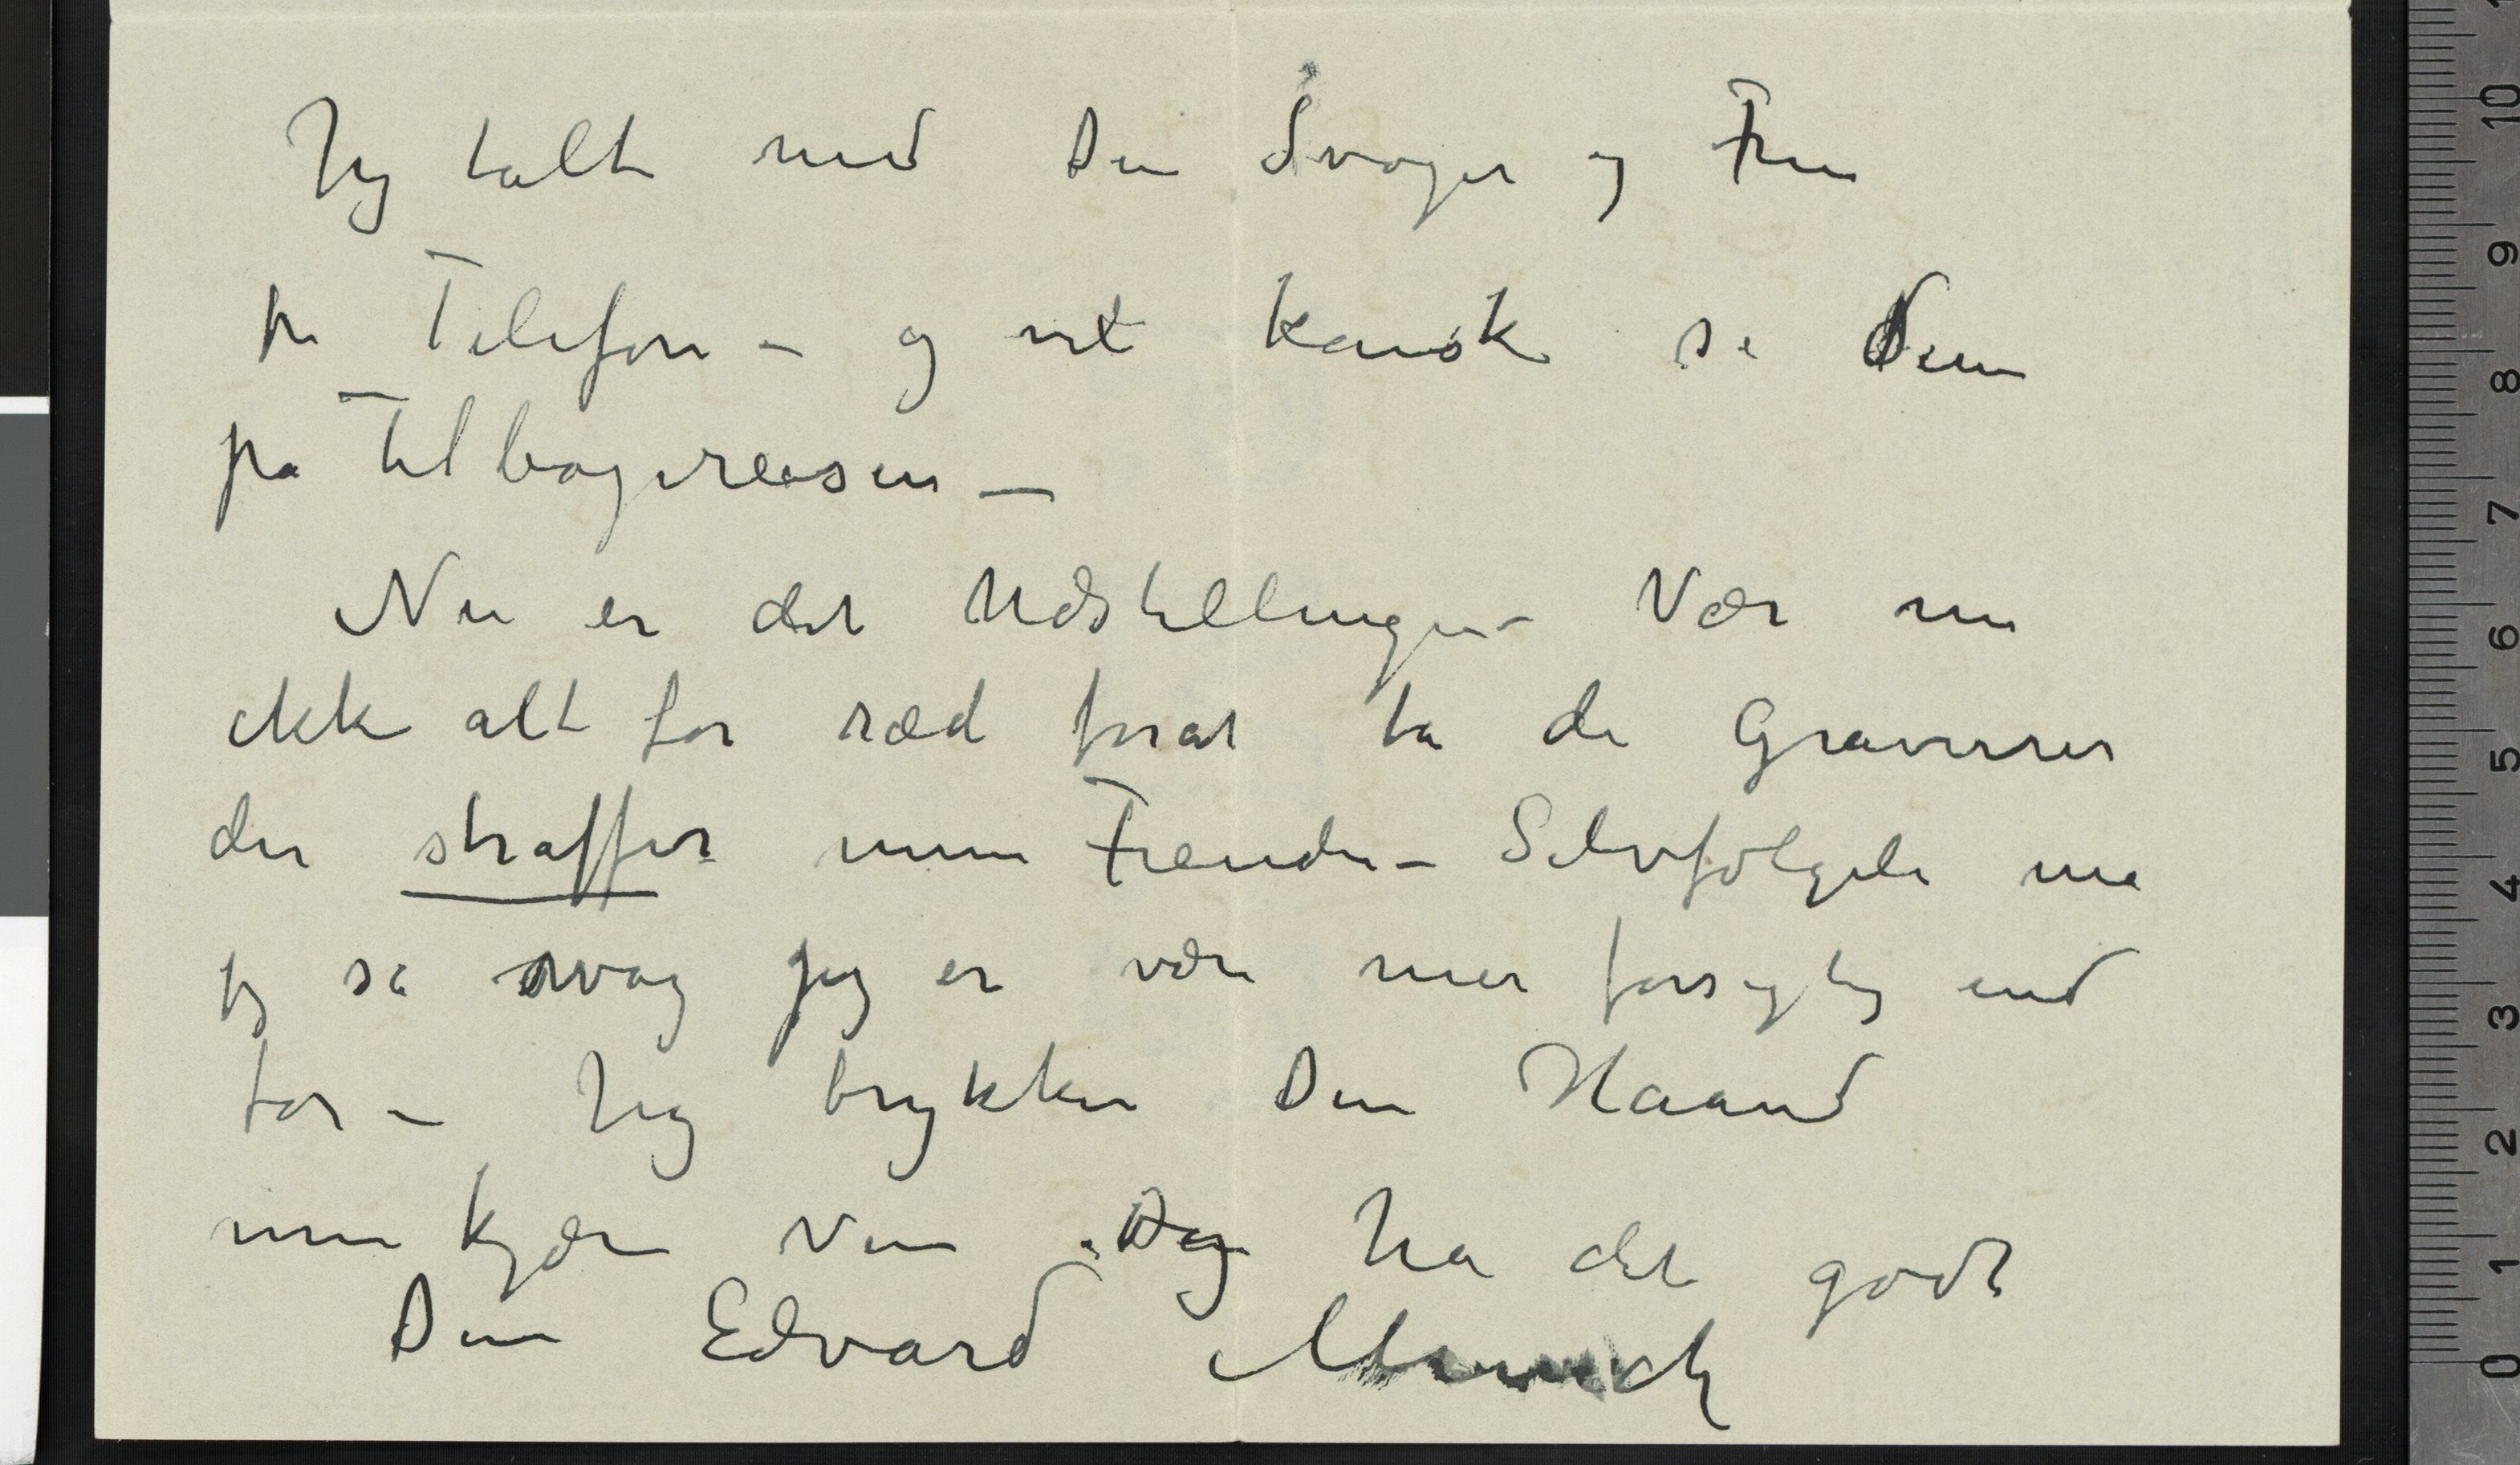 Jeg talte med Din Svoger og Frue
pr Telefon – og vil kanske se dem
på Tilbagereisen –
Nu er det Udstillingen – Vær nu
ikke alt for ræd forat ta de Graverier
der straffer mine Fiender – Selvfølgeli må
jeg så svag jeg er være mer forsigtig end
før – Jeg trykker Din Haand
min kjære Ven Dig ha det godt
Din Edvard Munch